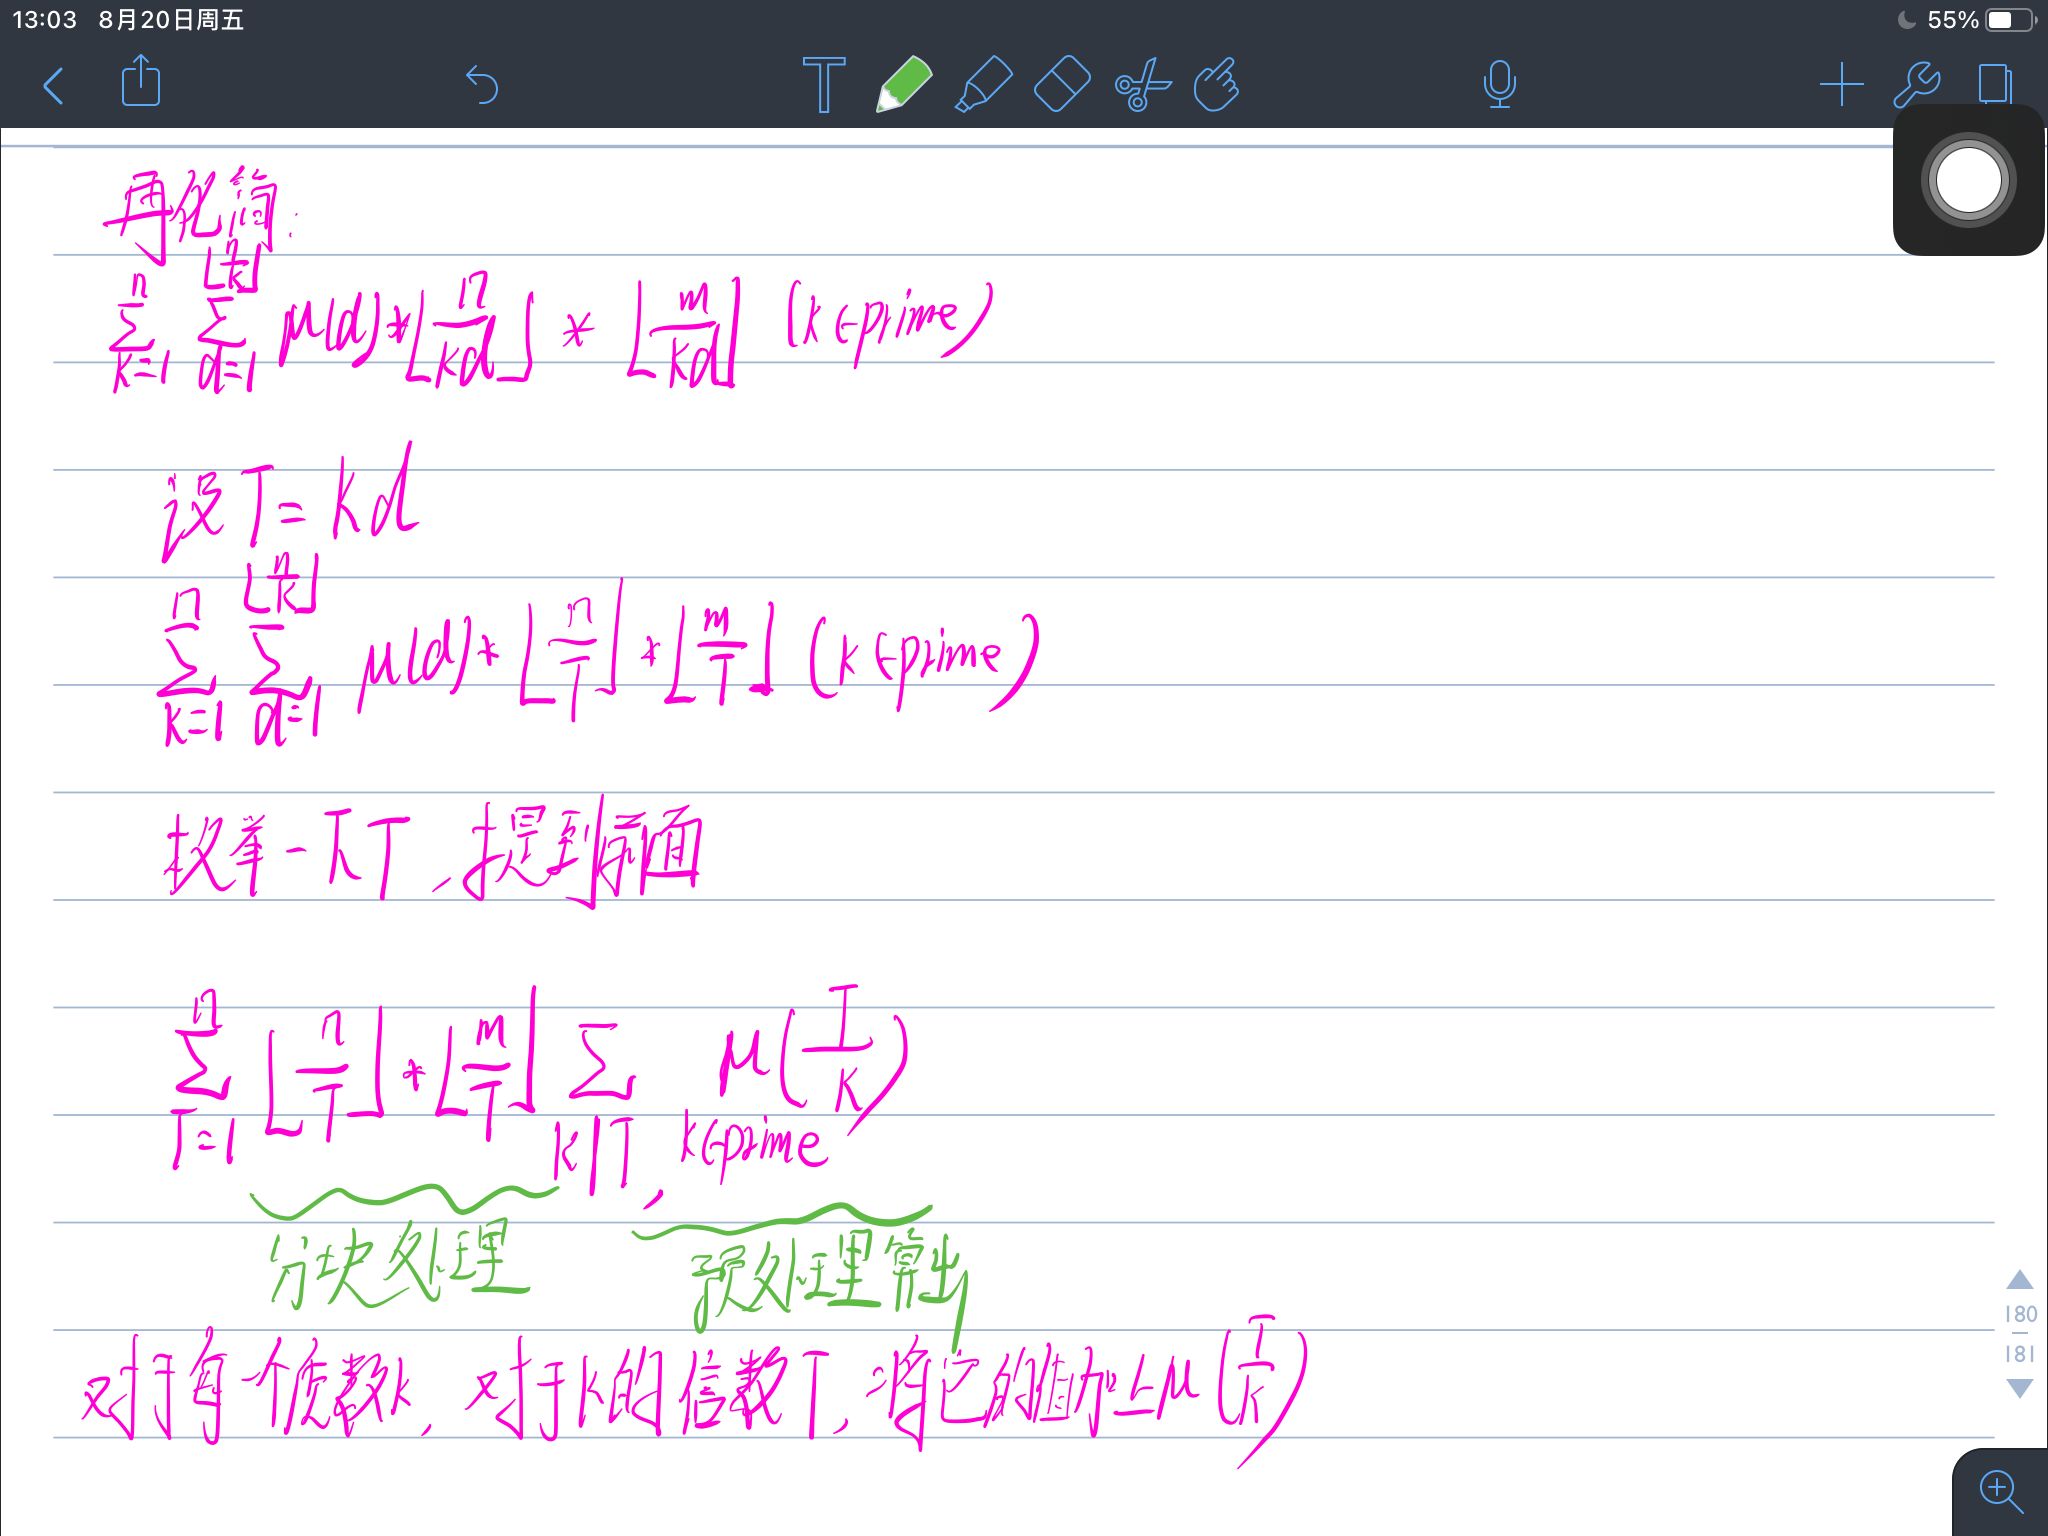 13:03 8月20日周五 55%
T
再化简:
\sum_{k=1}^{n} \sum_{d=1}^{⌊\frac{n}{k}⌋} μ(d) * ⌊\frac{n}{kd}⌋ * ⌊\frac{m}{kd}⌋ (k∈prime)
设T=kd
\sum_{k=1}^{n} \sum_{d=1}^{⌊\frac{n}{k}⌋} μ(d) * ⌊\frac{n}{T}⌋ * ⌊\frac{m}{T}⌋ (k∈prime)
枚举一下T,提到前面
\sum_{T=1}^{n} ⌊\frac{n}{T}⌋ * ⌊\frac{m}{T}⌋ \sum_{k|T, k∈prime} μ(\frac{T}{k})
分块处理 预处理算出
对于每一个质数k,对于k的倍数T,将它的值加上μ(\frac{T}{k})
180
181